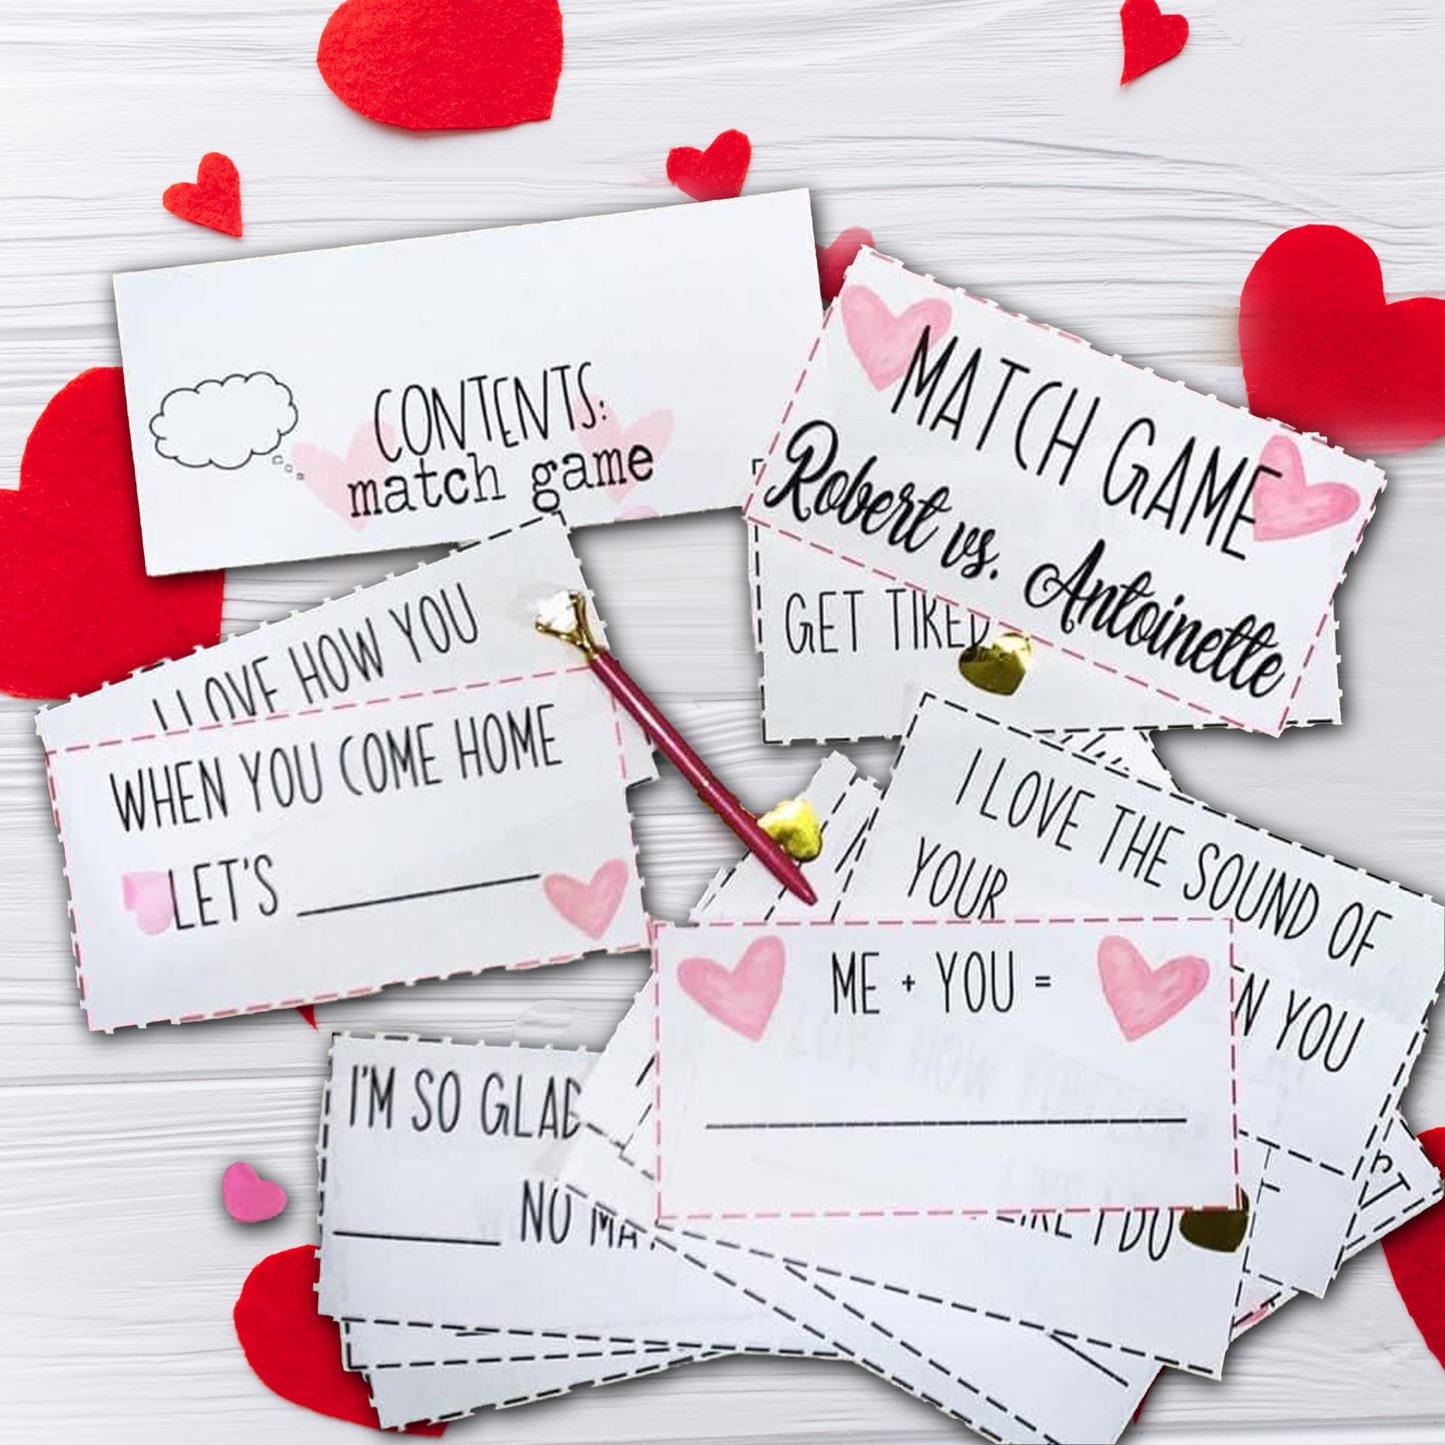 CONTENTS:
match game
MATCH GAME
Robert vs. Antoinette
GET TIRED
I LOVE HOW YOU
WHEN YOU COME HOME
LET'S
I LOVE THE SOUND OF
YOUR
N YOU
ME + YOU =
I'M SO GLAD
NO MA
LIKE I DO